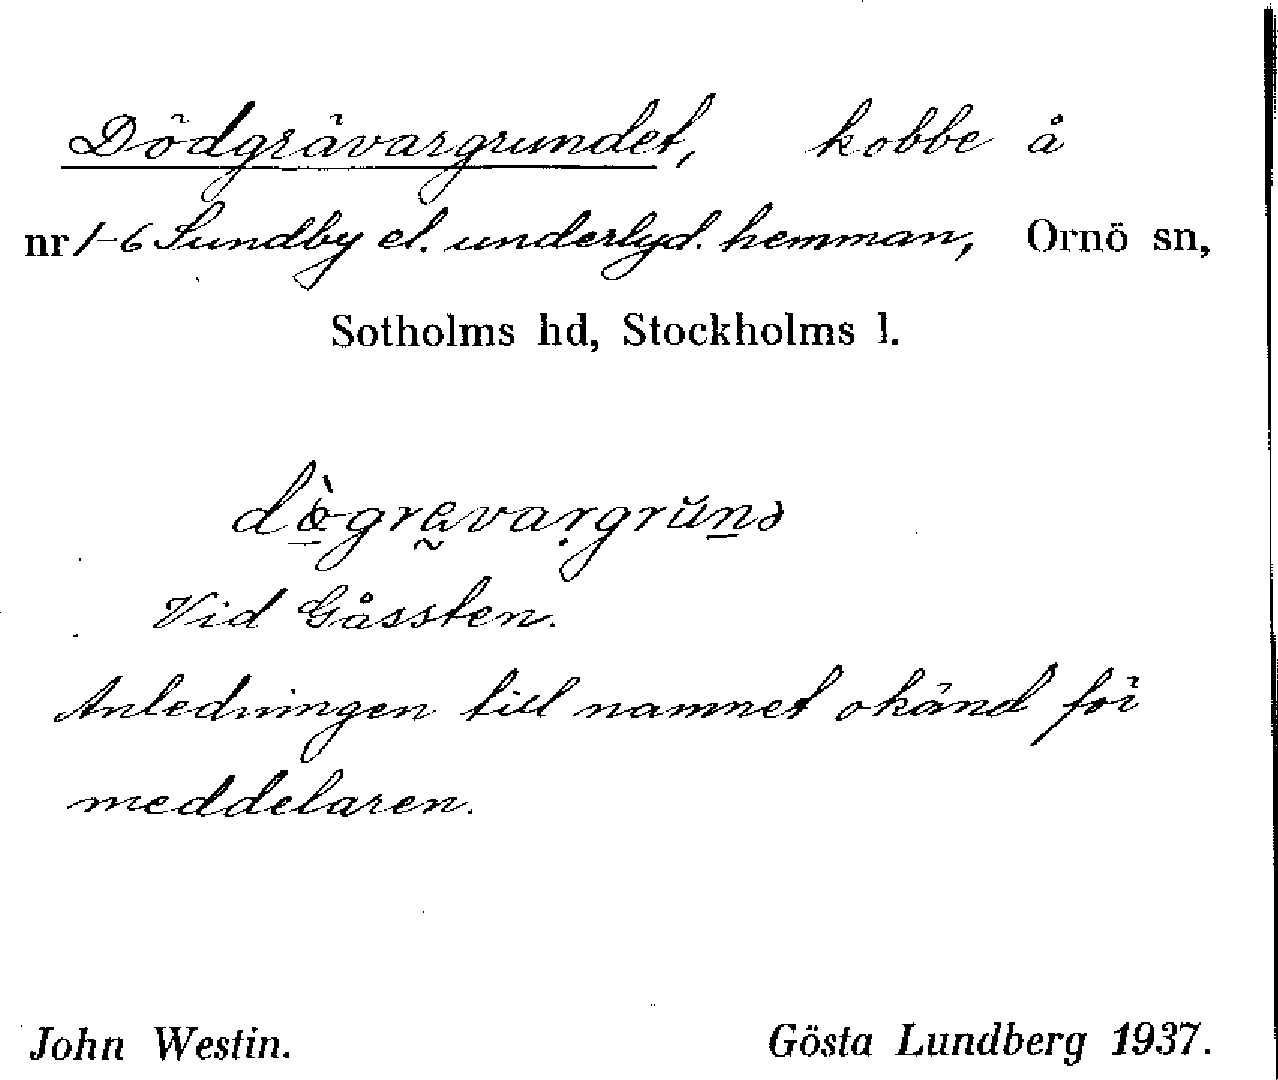 Dödgrävargrundet, kobbe å
nr 1-6 Sundby el. underlyd. hemman, Ornö sn,
Sotholms hd, Stockholms l.
Vid Gåssten.
Anledningen till namnet okänd för
meddelaren.
John Westin. Gösta Lundberg 1937.